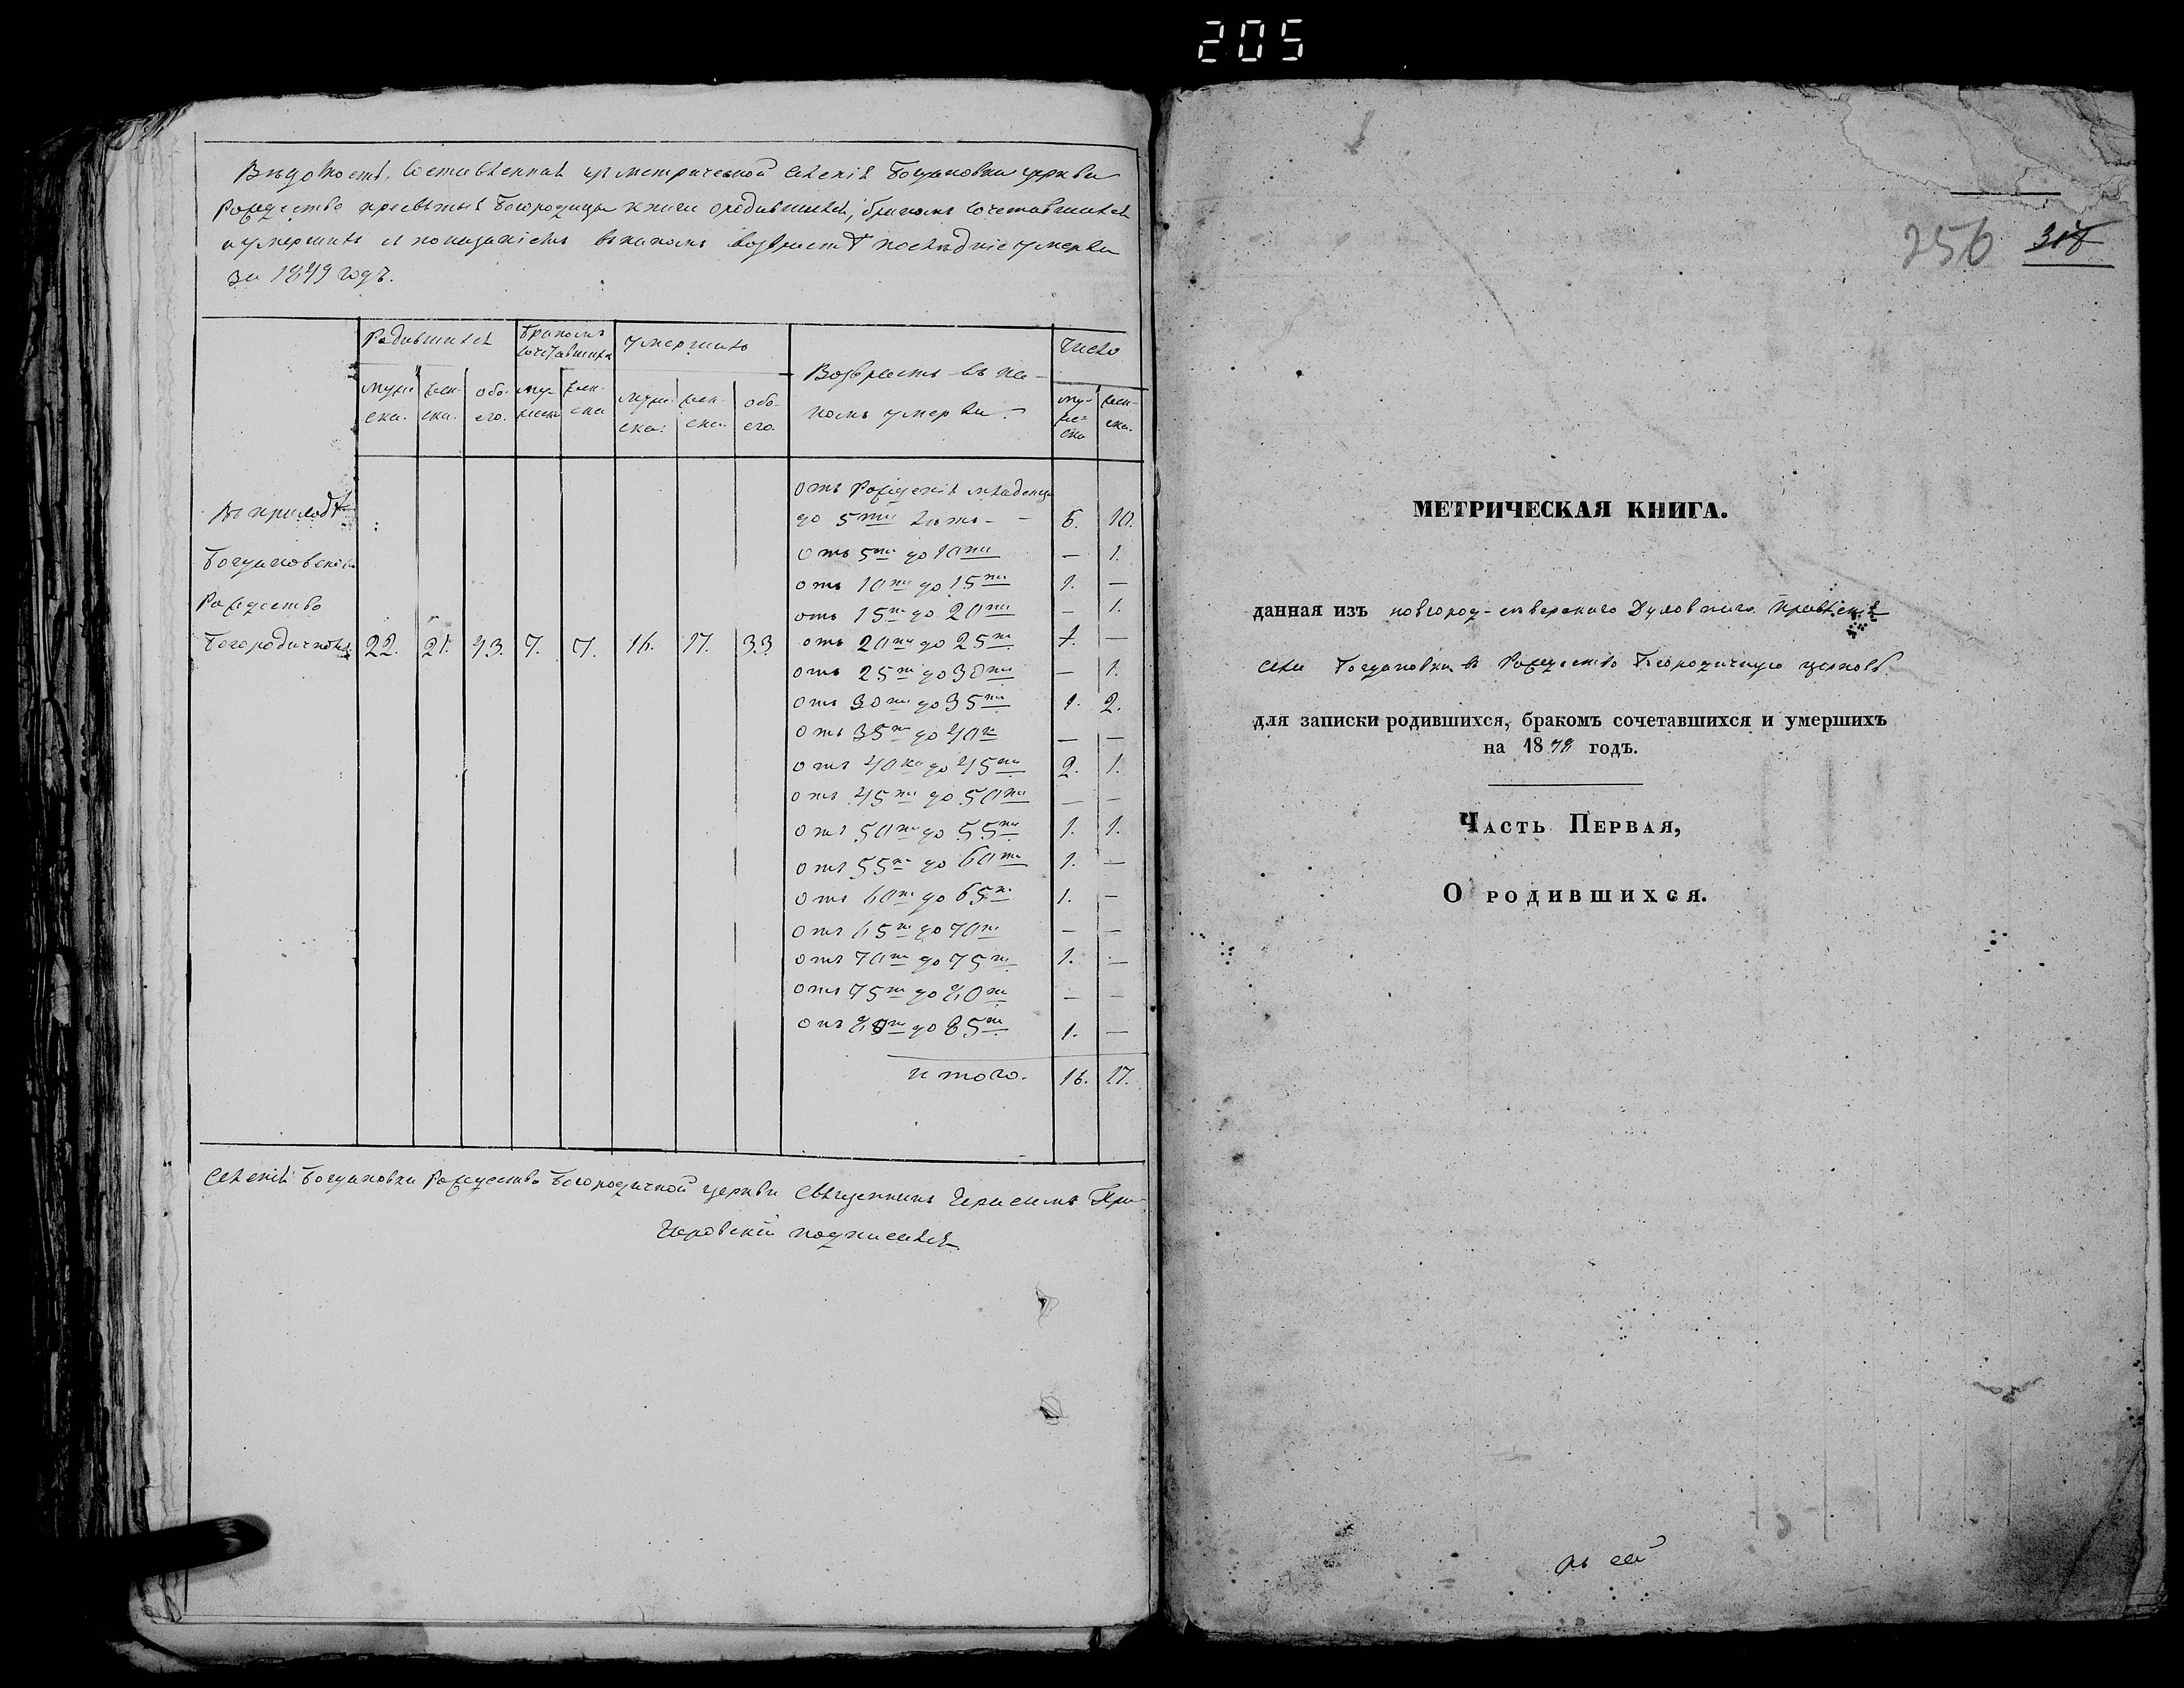 205
Вѣдомость, составленная изъ метрической селенія Богдановки церкви
Рождества пресвятыя Богородицы книги о родившихся, бракомъ сочетавшихся
и умершихъ съ показаніемъ въ какомъ возрастѣ послѣдніе умерли
за 1849 годъ.
Родившихся Бракомъ сочетавшихся Умершихъ Возрастъ въ ка-комъ умерли. Число
мужеска. женска. обоего. мужеска женска мужеска. женска. обоего. мужеска женска.
отъ Рожденія младенца
Въ приходѣ до 5ти лѣтъ - - 6. 10.
Богдановской отъ 5ти до 10ти — 1.
отъ 10ти до 15ти 1. —
Рождество отъ 15ти до 20ти — 1.
Богородичномъ 22. 21. 43. 7. 7. 16. 17. 33 отъ 20ти до 25ти 1. —
отъ 25ти до 30ти — 1.
отъ 30ти до 35ти 1. 2.
отъ 35ти до 40ка — —
отъ 40ка до 45ти 2. 1.
отъ 45ти до 50ти — —
отъ 50ти до 55ти 1. 1.
отъ 55ти до 60ти 1. —
отъ 60ти до 65ти 1. —
отъ 65ти до 70ти — —
отъ 70ти до 75ти 1. —
отъ 75ти до 80ти — —
отъ 80ти до 85ти 1. —
итого. 16. 17.
Селенія Богдановки Рождество Богородичной церкви Священникъ Герасимъ
подписался
256 318
МЕТРИЧЕСКАЯ КНИГА.
данная изъ новгород-сѣверскаго Духовнаго Правленія
села Богдановки въ Рождество Богородичную церковь.
для записки родившихся, бракомъ сочетавшихся и умершихъ
на 1849 годъ.
Часть Первая,
О родившихся.